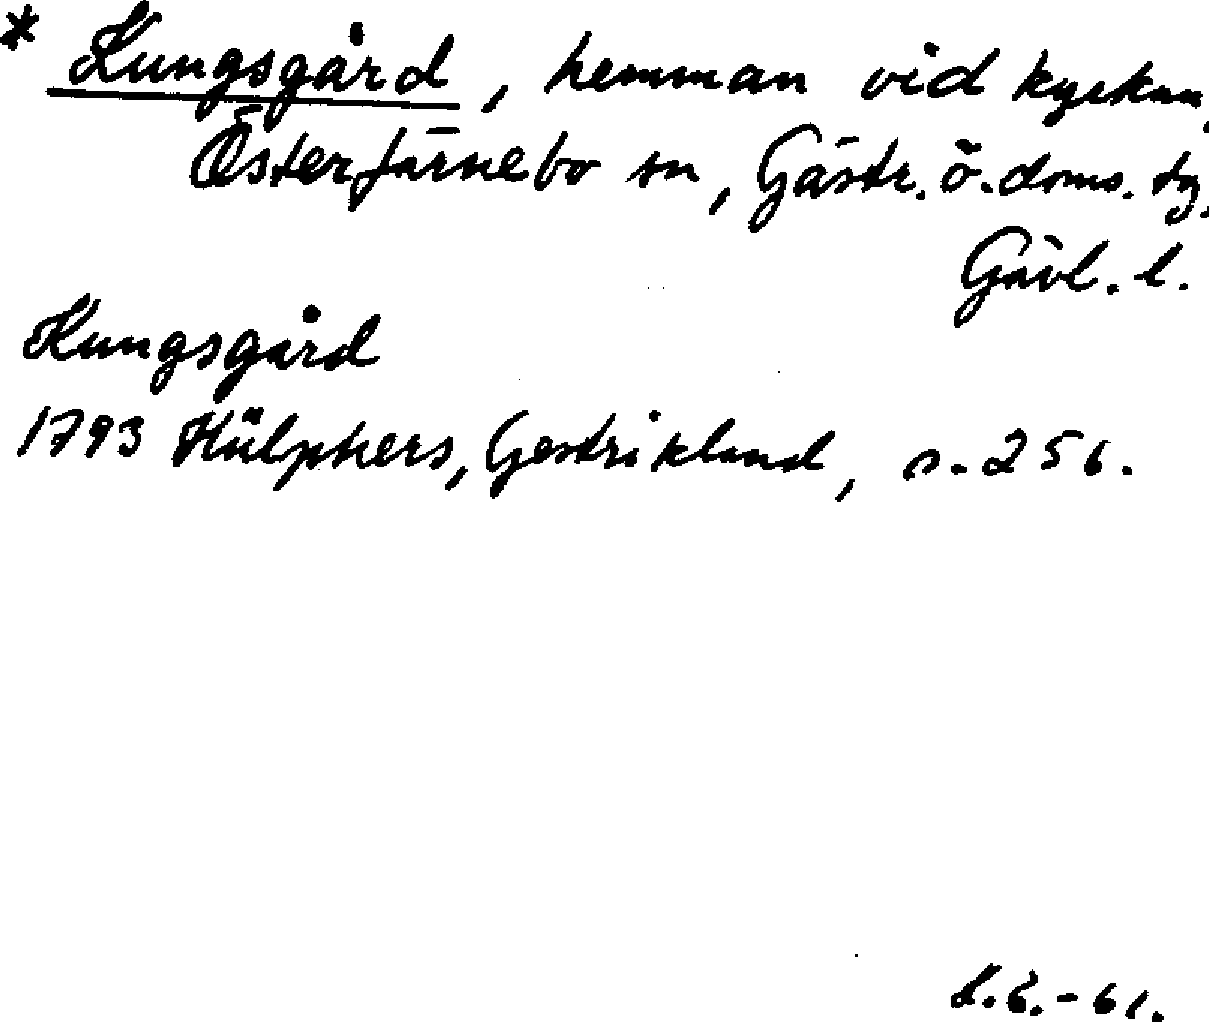 * Kungsgård, hemman vid kyrkan,
Österfärnebo sn, Gästr. ö. doms. tg.
Gävl. l.
Kungsgård
1793 Hülphers, Gestrikland, s. 256.
-61.